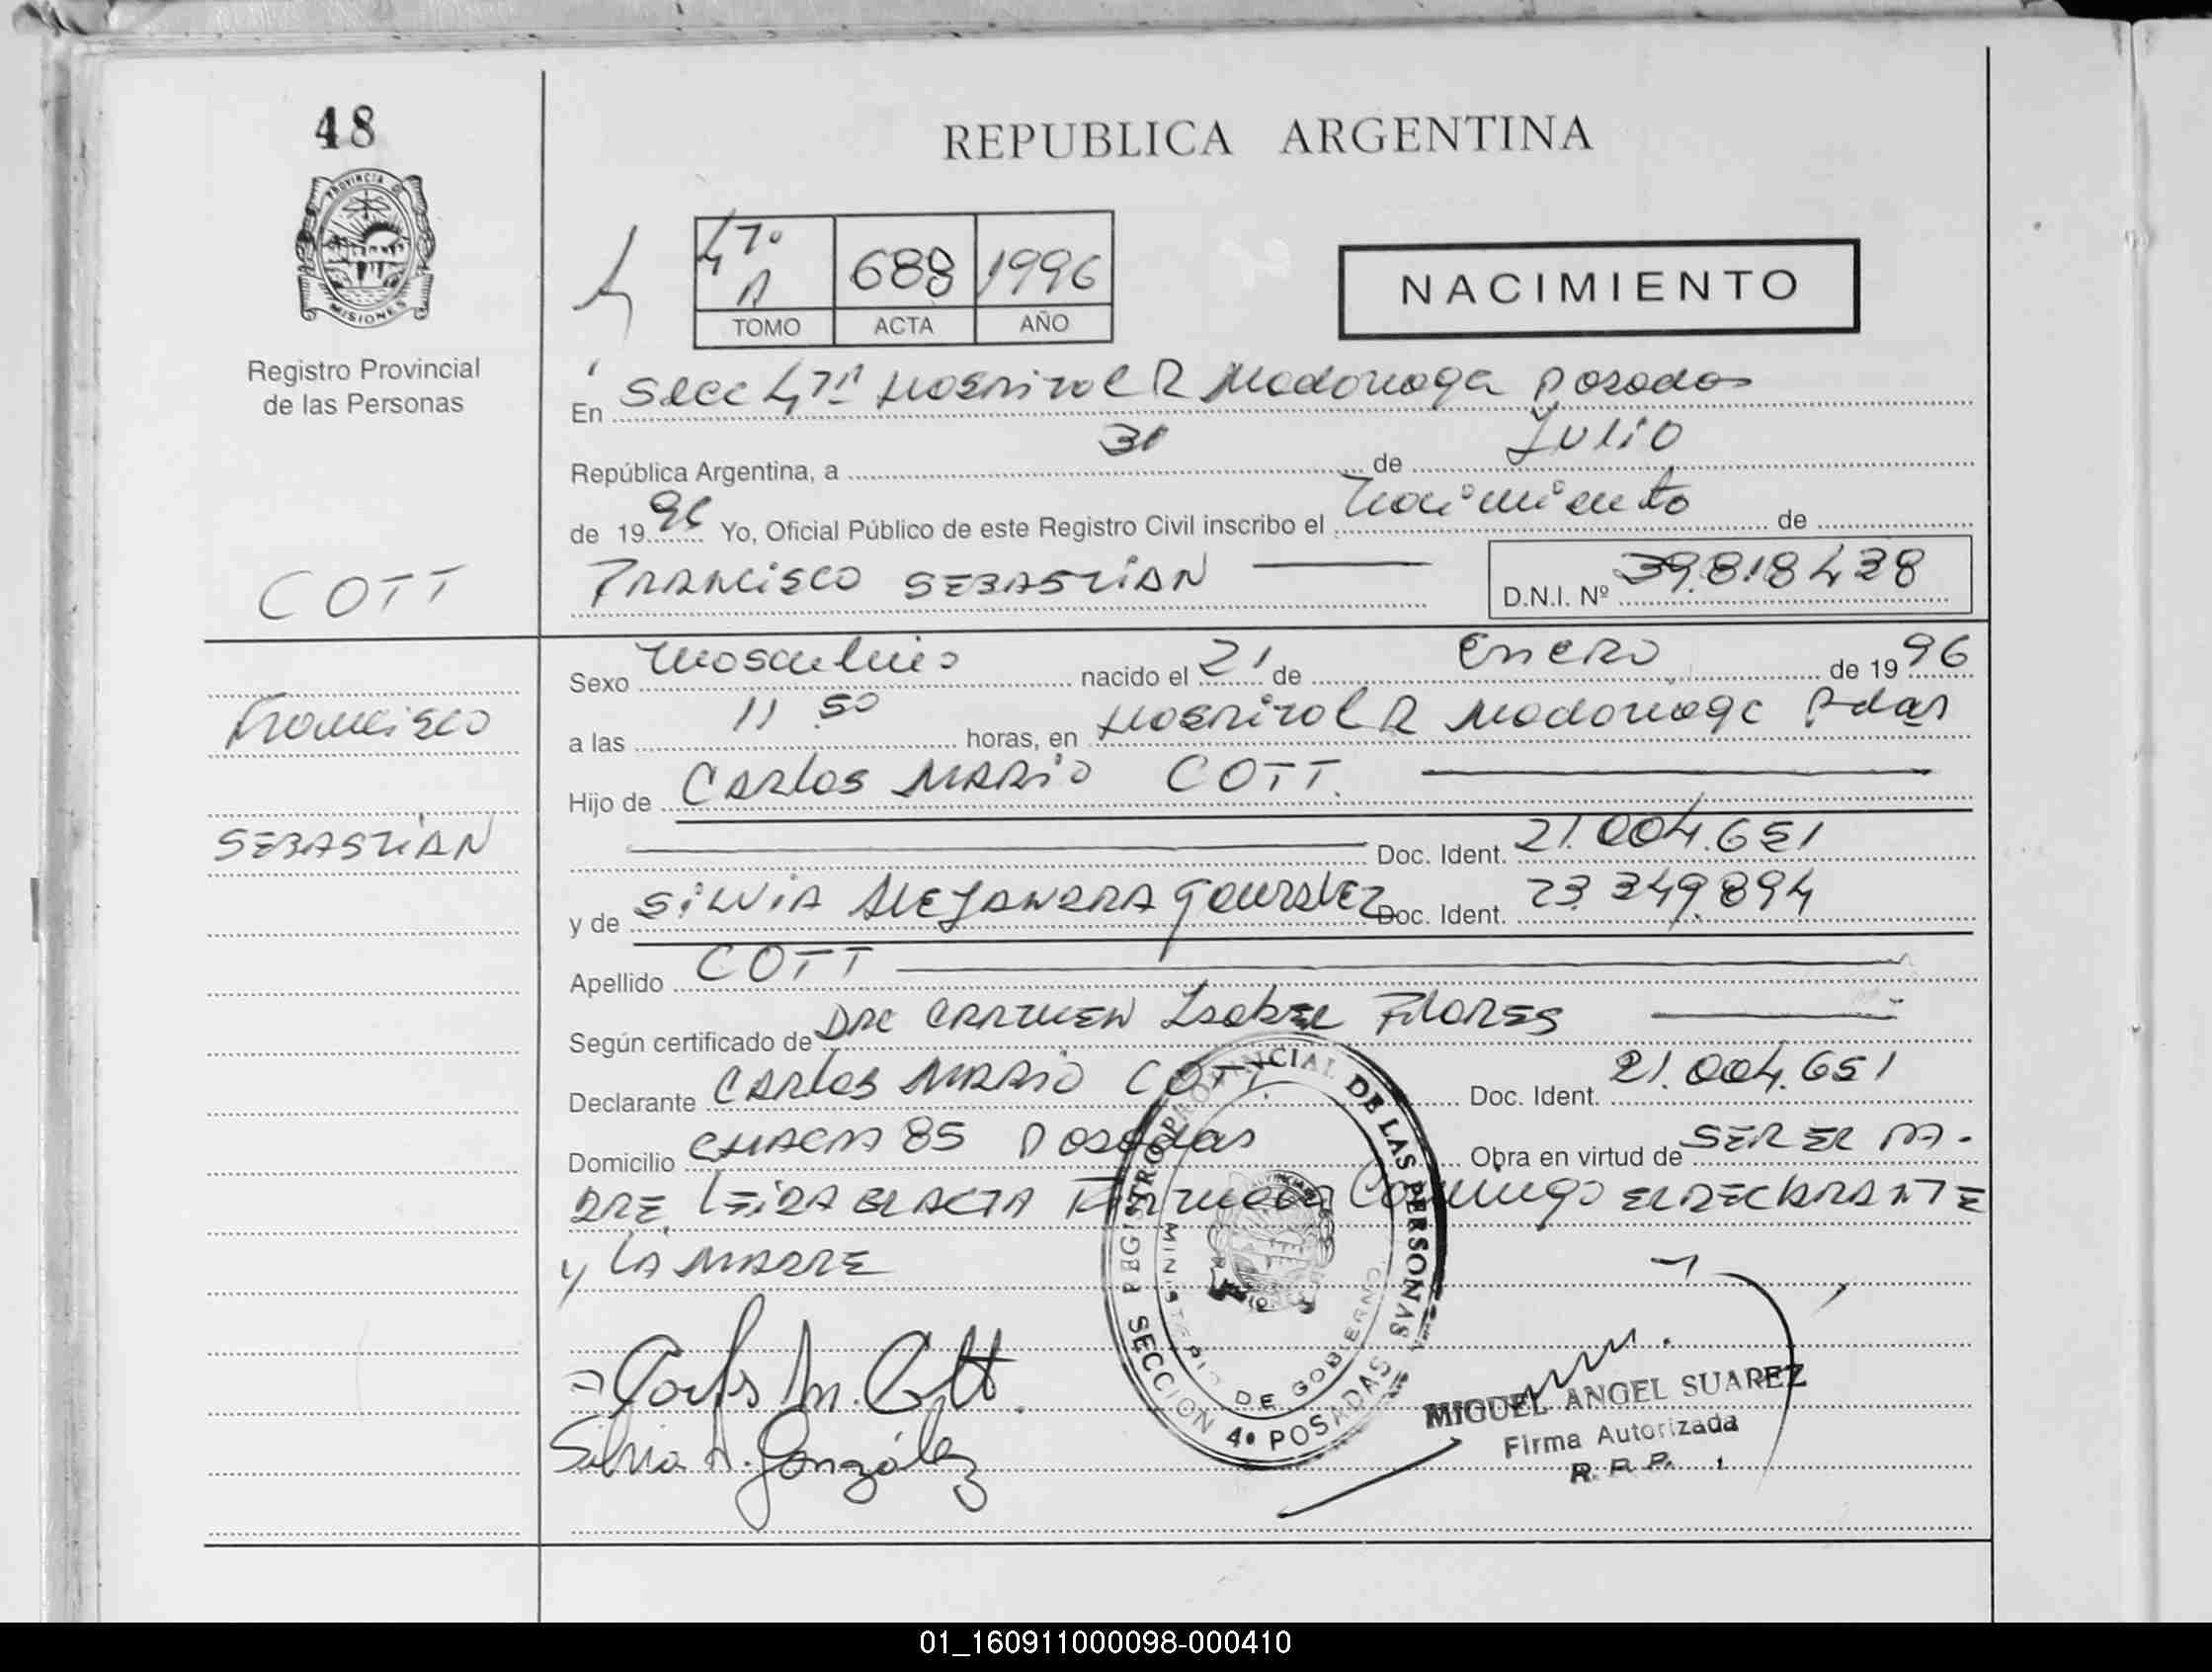 48
REPUBLICA ARGENTINA
PROVINCIA DE
MISIONES
4º A 688 1996
TOMO ACTA AÑO
NACIMIENTO
Registro Provincial
de las Personas
En Secc 4ta Hospital R Madariaga Posadas
República Argentina, a 31 de Julio
de 1996 Yo, Oficial Público de este Registro Civil inscribo el Nacimiento de
COTT
FRANCISCO SEBASTIAN
D.N.I. Nº 39.818.438
Sexo Masculino nacido el 21 de Enero de 1996
Francisco
a las 11 50 horas, en Hospital R Madariaga Pdas
Hijo de Carlos Mario COTT.
SEBASTIAN
Doc. Ident. 21.004.651
y de Silvia Alejandra González Doc. Ident. 23.349.894
Apellido COTT
Según certificado de Dra Carmen Isabel Flores
Declarante Carlos Mario COTT. Doc. Ident. 21.004.651
Domicilio Chacra 85 Posadas Obra en virtud de SER EL PA-
DRE. Leida el acta Firman Conmigo el declarante
y la madre
Carlos M. Cott.
Silvia A. González
REGISTRO PROVINCIAL DE LAS PERSONAS
MINISTERIO DE GOBIERNO
SECCION 4ª POSADAS
MIGUEL ANGEL SUAREZ
Firma Autorizada
R. P. P.
01_160911000098-000410